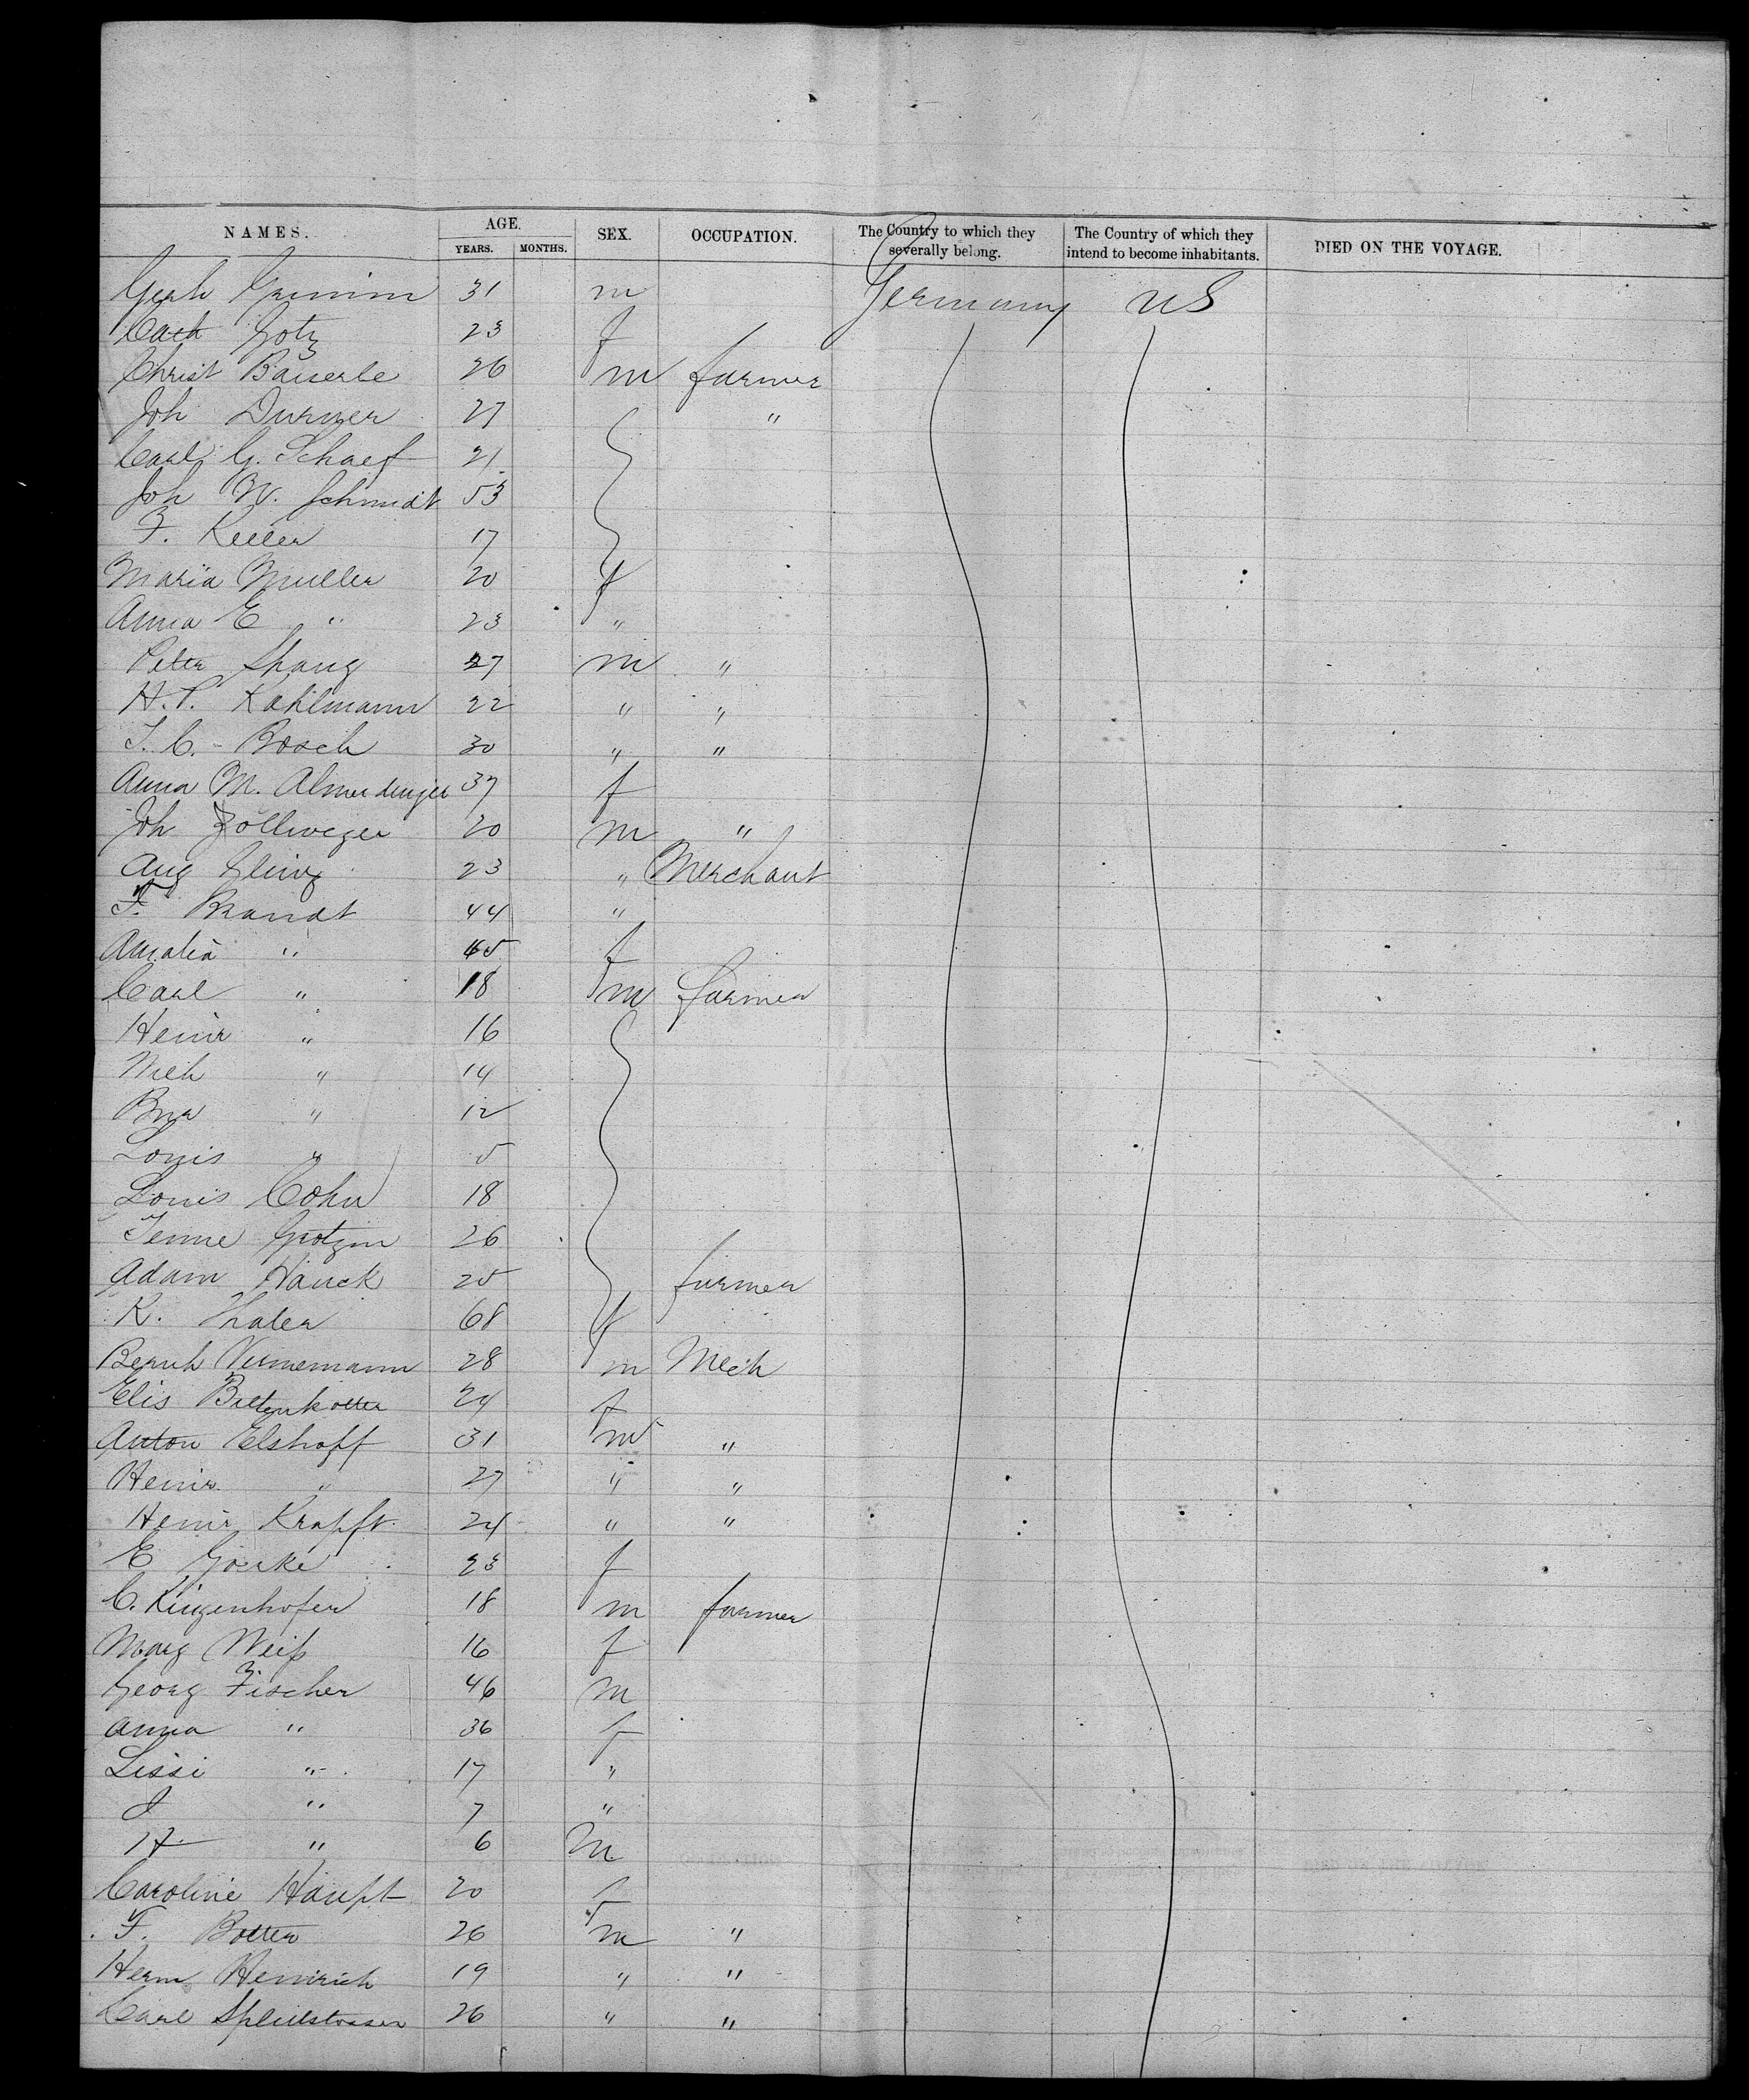 NAMES. AGE. SEX. OCCUPATION. The Country to which they severally belong. The Country of which they intend to become inhabitants. DIED ON THE VOYAGE.
YEARS. MONTHS.
Gerh Grimm 31 m Germany US
Cath Gotz 23 f
Christ Bauerle 26 m farmer
Joh Durner 27 "
Carl G. Schaef 21
Joh W. Schmidt 53
F. Keller 17
Maria Muller 20 f
Anna E " 23 "
Peter Spang 27 m "
H. P. Kahlmann 22 " "
J. C. - Bosch 30 " "
Anna M. Almendinger 37 f
Joh Zollweger 20 m "
Aug Gling 23 " Merchant
F. Brandt 44 "
Amalia " 45 f
Carl " 18 m farmer
Heinr " 16
Mich " 14
" 12
Louis " 5
Louis Cohn 18
Jenne 26
Adam Hauck 25 farmer
K. Thaler 68 f
Bernh Vennemann 28 m Mech
Elis 24 f
Anton Elshoff 31 m "
Heinr " 27 " "
Heinr Krapft 24 " "
E Goerke 23 f
C. Klingenhofer 18 m farmer
Marg Weiß 16 f
Georg Fischer 46 m
Anna " 36 f
Lissi " 17 "
J " 7 "
H " 6 m
Caroline Haupt 20 f
F. Botter 26 m "
Herm Heinrich 19 " "
Carl 26 " "